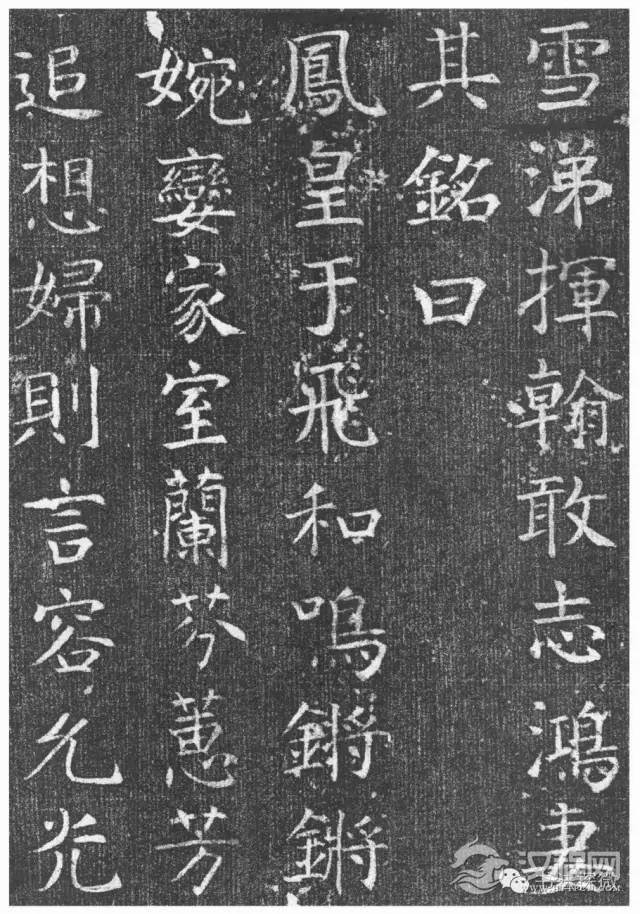 雪涕揮翰敢志鴻妻
其銘曰
鳳皇于飛和鳴鏘鏘
婉孌家室蘭芬蕙芳
追想婦則言容允光
汉程网